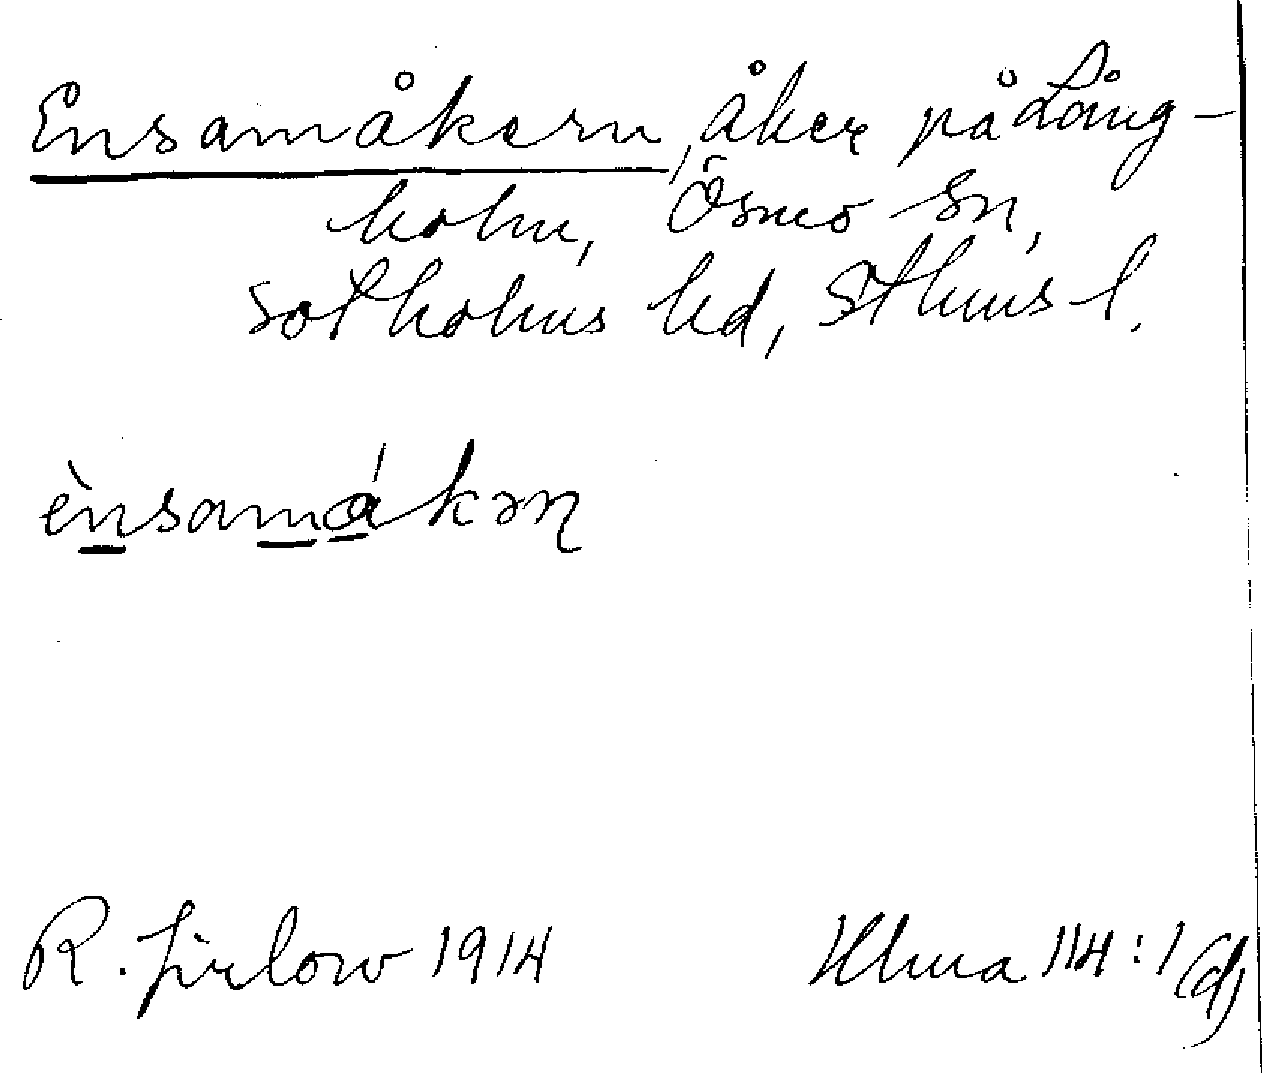 Ensamåkern, åker på Lång-
holm, Ösmo sn,
Sotholms hd, Sthms l.
ènsamákən
R. Jirlow 1914
114:1 (d)